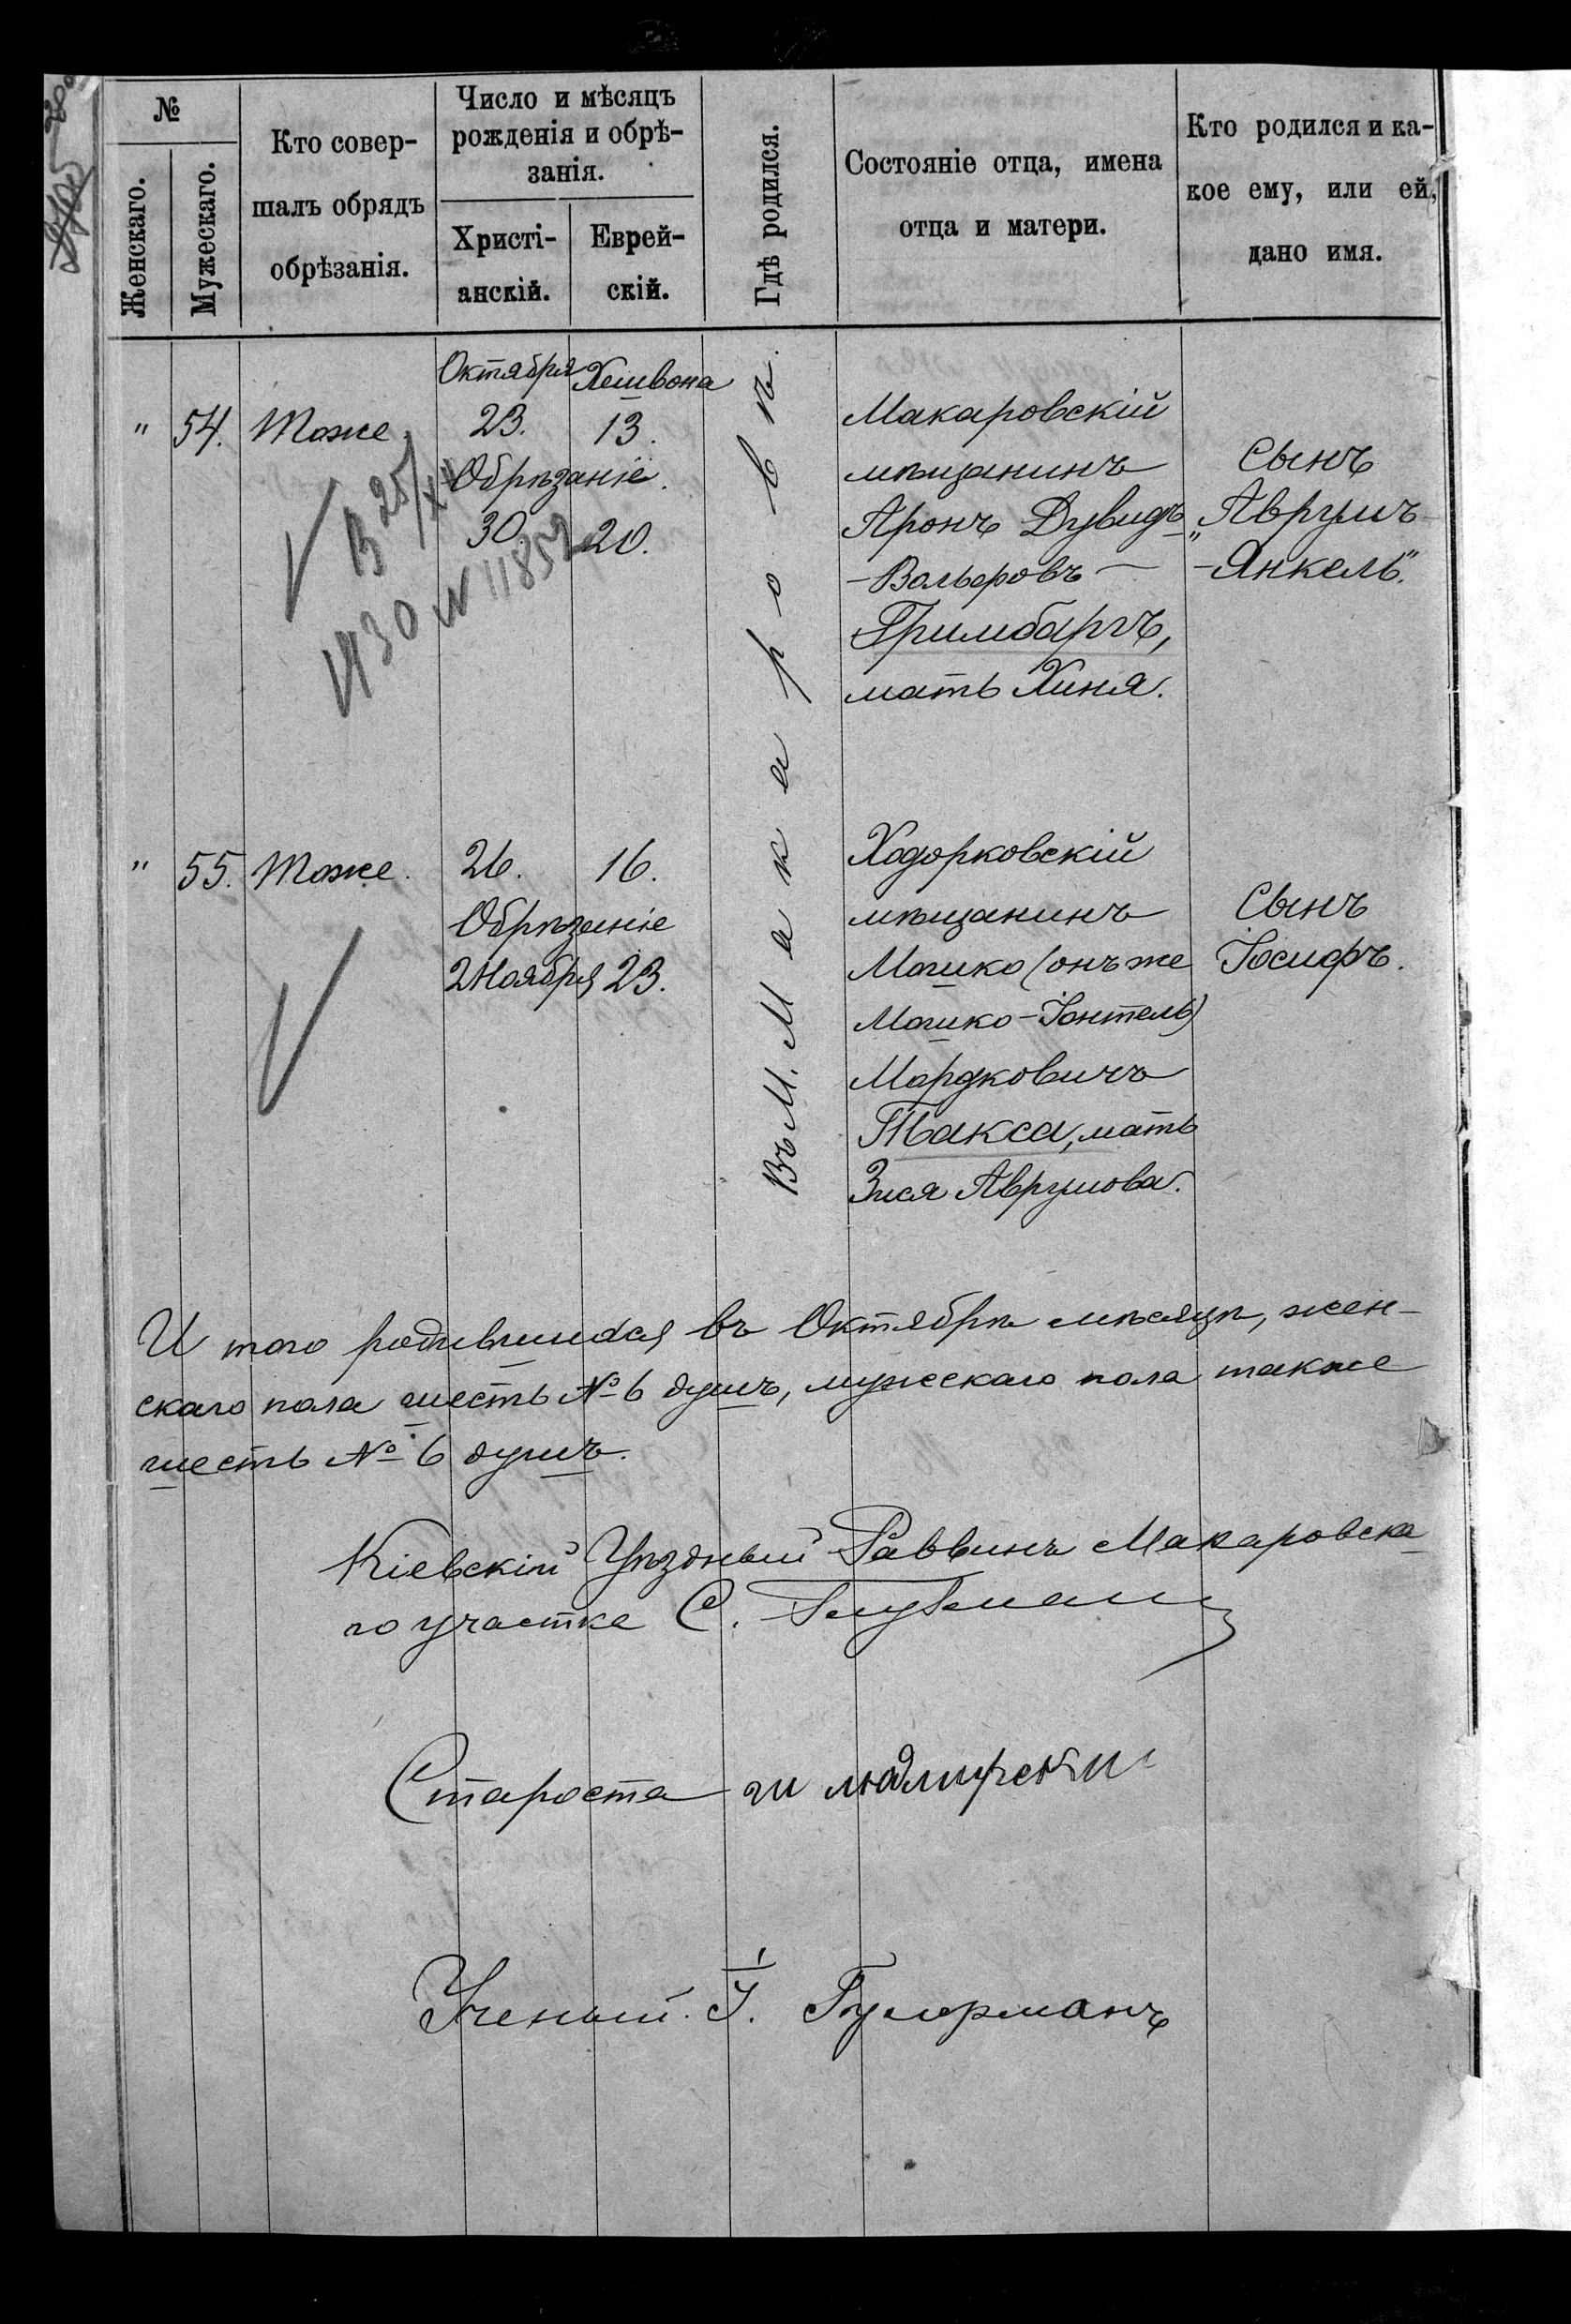 №
Женскаго.
Мужескаго.
Кто совер-
шалъ обрядъ
обрѣзанія.
Число и мѣсяцъ
рожденія и обрѣ-
занія.
Христі-
анскій.
Еврей-
скій.
Гдѣ родился.
Состояніе отца, имена
отца и матери.
Кто родился и ка-
кое ему, или ей,
дано имя.
Октября Хешвона
" 54. Тоже. 23. 13.
Обрѣзаніе.
30. 20.
В 25/XI
1930 № 11859
Въ М. Макаровѣ.
Макаровскій
мѣщанинъ
Аронъ Дувидъ
- Вольфовъ -
Гримбаргъ,
мать Хиня.
Сынъ
„Аврумъ-
-Янкель".
" 55. Тоже. 26. 16.
Обрѣзаніе
2 Ноября 23.
Ходорковскій
мѣщанинъ
Мошко (онъ же
Мошко-Іонтель)
Мордковичъ
Такса, мать
Зися Аврумова.
Сынъ
Іосифъ.
И того родившихся въ Октябрѣ мѣсяцѣ, жен-
скаго пола шесть № 6 душъ, мужескаго пола также
шесть № 6 душъ.
Кіевскій Уѣздный Раввинъ Макаровска-
го участка С.
Староста
Ученый І.